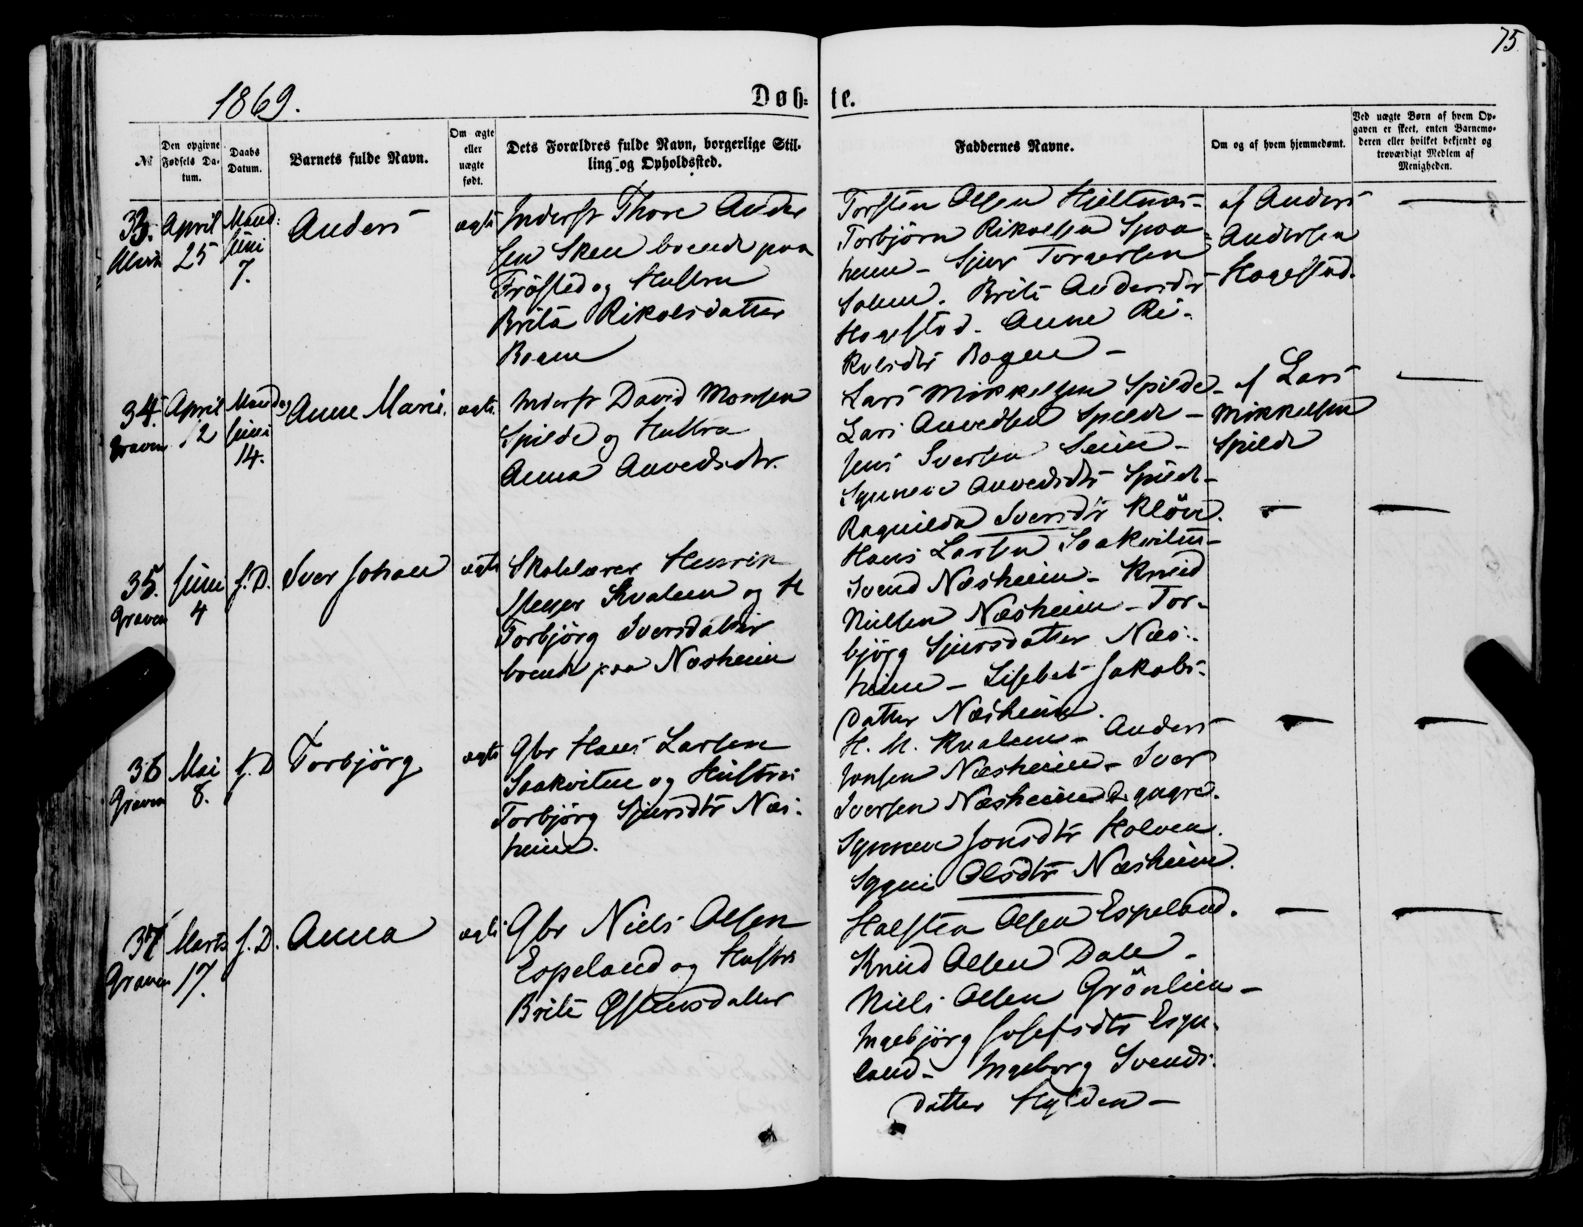 75
1869.
Døb= te.
№
Den opgivne Fødsels Datum.
Daabs Datum.
Barnets fulde Navn.
Om ægte eller uægte født.
Dets Forældres fulde Navn, borgerlige Stilling og Opholdssted.
Faddernes Navne.
Om og af hvem hjemmedømt.
Ved uægte Børn af hvem Opgaven er skeet, enten Barnemoderen eller hvilket bekjendt og troværdigt Medlem af Menigheden.
33.
April
25
Mand:
Juni
7.
Anders
ægte
Inderst Thore Ander
sen Skeie boende paa
Frøsted og Hustru
Brita Rikolsdatter
Torsten Olsen Hjeltnæs-
Torbjørn Rikolsen Spaa=
heim - Sjur Torgersen
Brite Andersdtr
Hagestad. Anne Ri-
kolsdtr Bagen -
af Anders
Andersen
Hagestad.
34.
Graven
April
12
Mandag
Juni
14.
Anne Marie.
ægte
Inderst David Monsen
Spilde og Hustru
Anna Anvedsdtr.
Lars Mikkelsen Spilde-
Lars Anvedsen Spilde -
Jens Iversen Seim -
Synneve Anvedsdtr Spilde-
Ragnilda Iversdtr Kløve.
af Lars
Mikkelsen
Spilde
35.
Graven
Juni
4
f. D.
Iver Johan
ægte
Skolelærer Henrik
Kvalem og H
Torbjørg Iversdatter
boende paa Næsheim
Hans Larsen Saakvitne-
Svend Næsheim - Knud
Nielsen Næsheim - Tor-
bjørg Sjursdatter Næs-
heim - Lisebet Jakobs-
datter Næsheim.
36
Graven
Mai
8.
f. D
Torbjørg
ægte
Gbr Hans Larsen
Saakvitne og Hustru
Torbjørg Sjursdtr Næs-
heim.
H. M. Kvalem - Anders
Jonsen Næsheim - Iver
Iversen Næsheim
Synneve Jonsdtr Holven.
Olsdtr Næsheim.
37
Graven
Marts
17.
f. D.
Anna
ægte
Gbr Niels Olsen
Espeland og Hustru
Brite Østensdatter
Halsten Olsen Espeland.
Knud Olsen Dale -
Niels Olsen Grønlien -
Ingebjørg Josefsdtr Espe-
land - Ingeborg Svends-
datter Hylden -